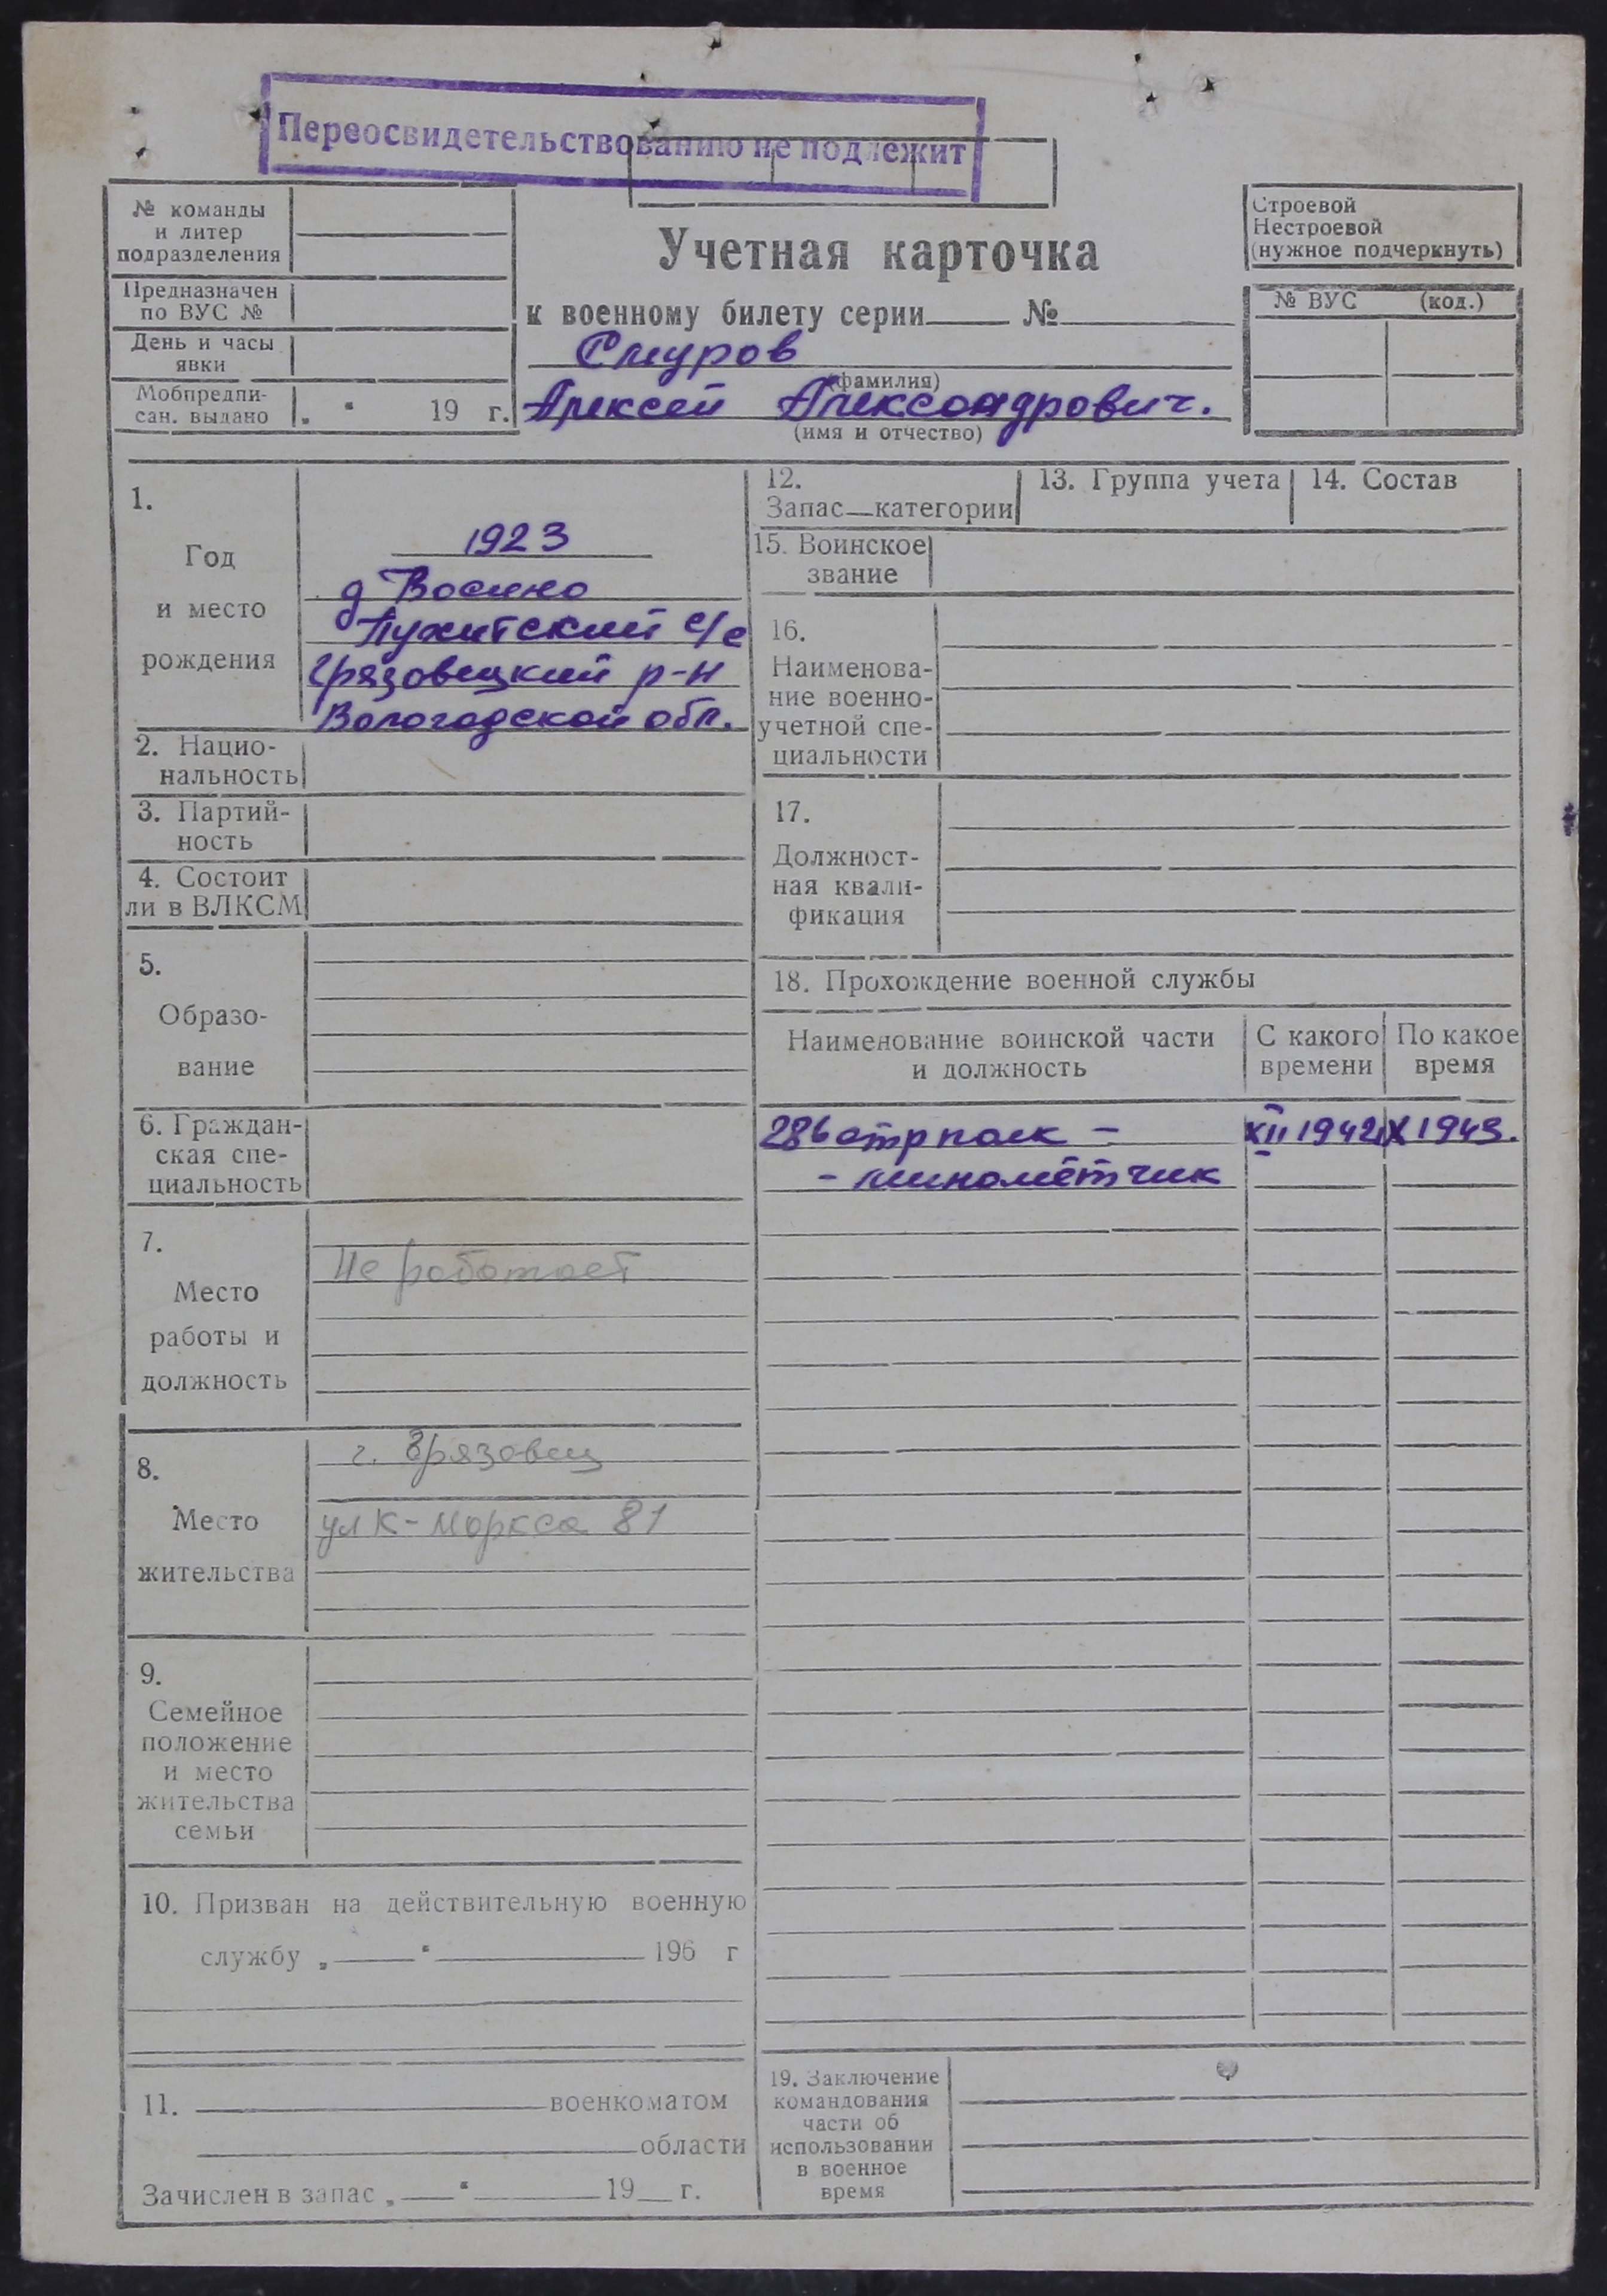 Переосвидетельствованию не подлежит
№ команды
и литер
подразделения
Предназначен
по ВУС №
День и часы
явки
Мобпредпи-
сан. выдано „ “ 19 г.
Учетная карточка
к военному билету серии №
Смуров
(фамилия)
Алексей Александрович.
(имя и отчество)
Строевой
Нестроевой
(нужное подчеркнуть)
№ ВУС (код.)
1.
Год
и место
рождения
1923
д Восино
с/с
Грязовецкий р-н
Вологодской обл.
2. Нацио-
нальность
3. Партий-
ность
4. Состоит
ли в ВЛКСМ
5.
Образо-
вание
6. Граждан-
ская спе-
циальность
7.
Место
работы и
должность
Не работает
8.
Место
жительства
г. Грязовец
ул К-Маркса 81
9.
Семейное
положение
и место
жительства
семьи
10. Призван на действительную военную
службу „ “ 196 г
11. военкоматом
области
Зачислен в запас „ “ 19 г.
12.
Запас—категории
13. Группа учета
14. Состав
15. Воинское
звание
16.
Наименова-
ние военно-
учетной спе-
циальности
17.
Должност-
ная квали-
фикация
18. Прохождение военной службы
Наименование воинской части
и должность
С какого
времени
По какое
время
286 стр полк – XII 1942 X 1943.
- миномётчик
19. Заключение
командования
части об
использовании
в военное
время